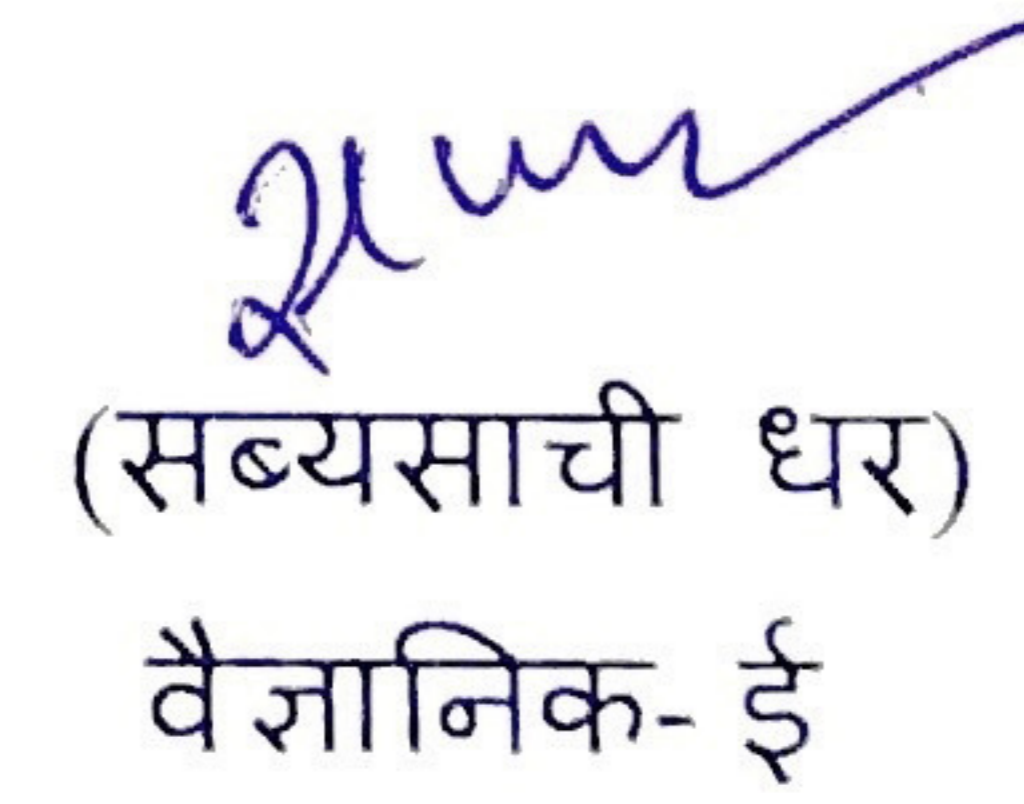 (सब्यसाची धर)
वैज्ञानिक- ई